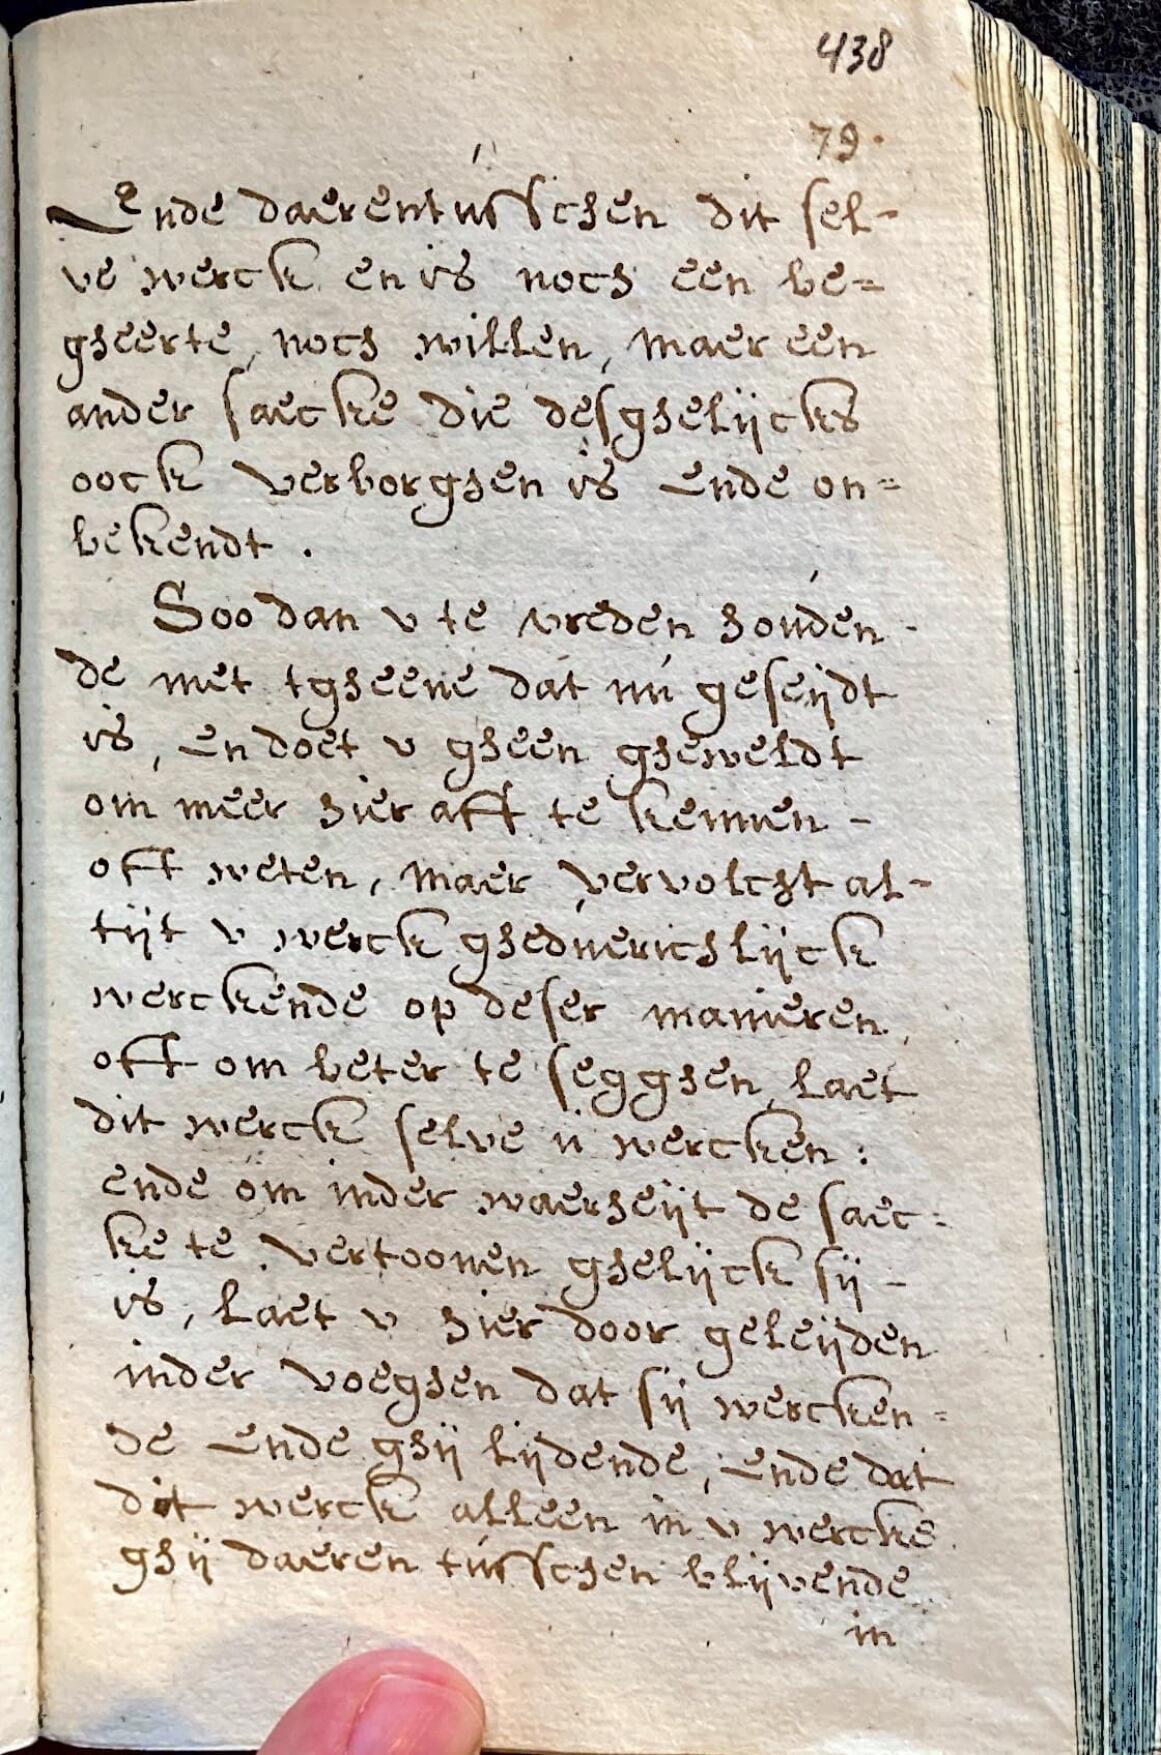 438
79.
Ende daerentusschen dit sel-
ve werck en is noch een be=
gheerte, noch willen, maer een
ander saecke die desghelijcks
oock verborghen is Ende on=
bekendt.
Soo dan v te vreden houden-
de met tgheene dat nú geseijdt
is, En doet v gheen gheweldt
om meer hier aff te kennen -
oft weten, maer vervolcht al-
tijt v werck gheduerichlijck
werckende op deser manieren,
oft om beter te segghen, laet
dit werck selve ú wercken:
ende om inder waerheijt de saec:
ke te vertoonen ghelijck sij -
is, laet v hier door geleijden
inder voeghen dat sij wercken=
de Ende ghij lijdende, Ende dat
dit werck alleen in v wercke
ghij daeren tússchen blijvende
in